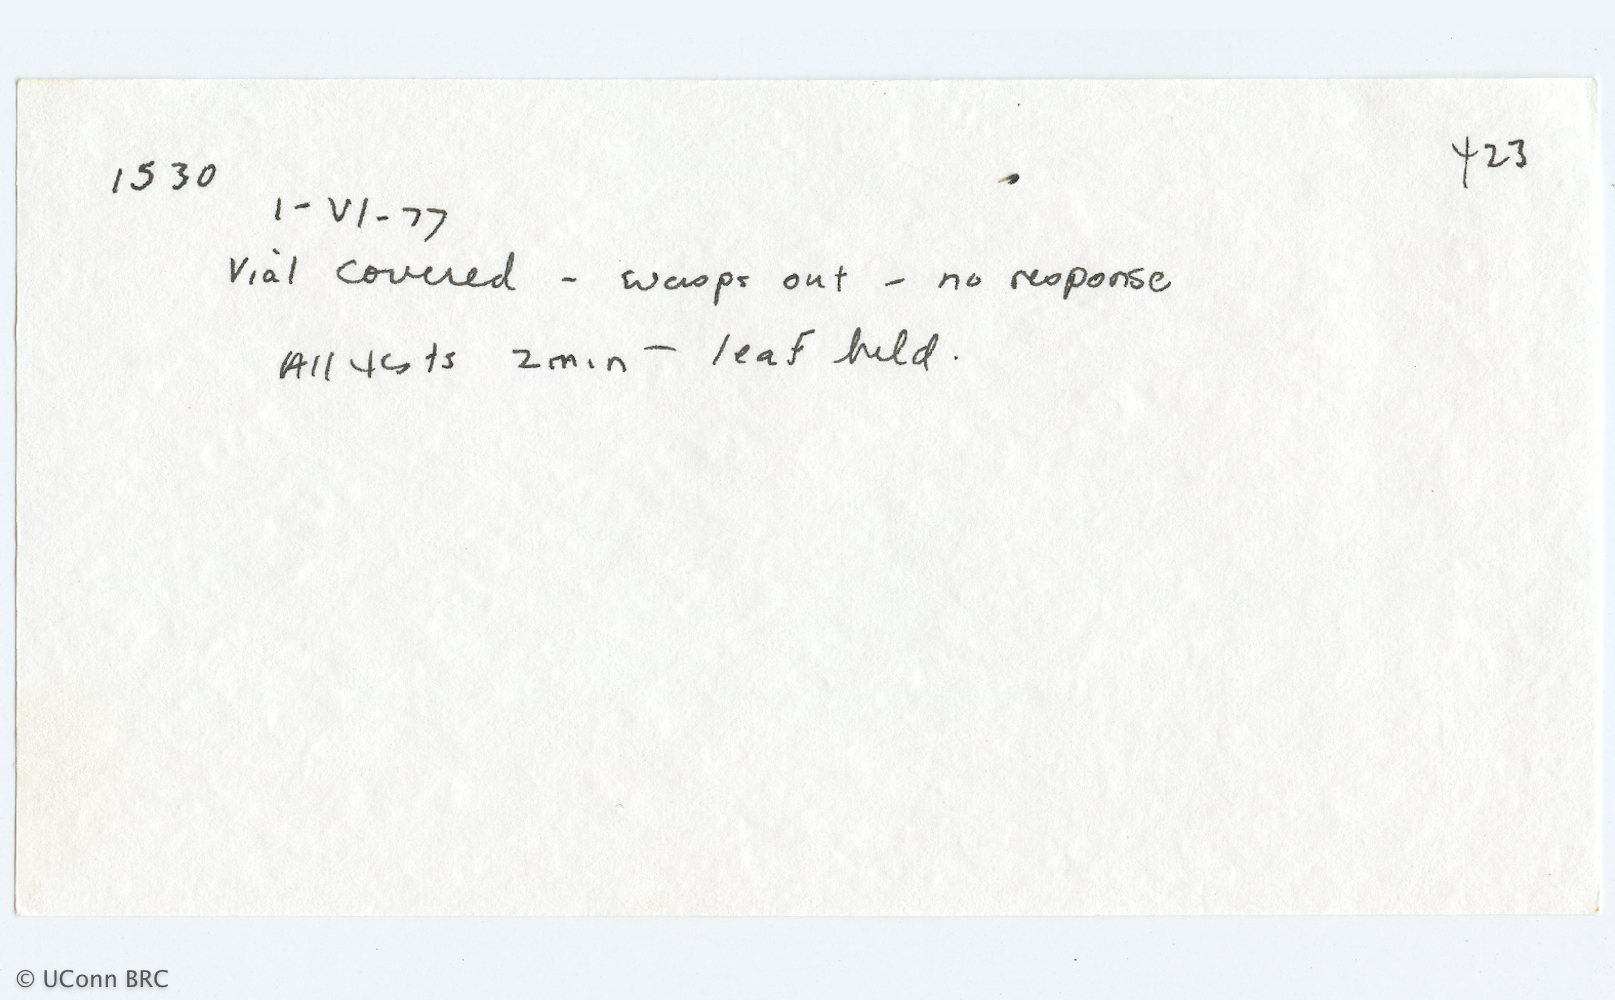 1530
423
1-VI-77
Vial covered - swaops out - no response
All tests 2min - leaf held.
© UConn BRC